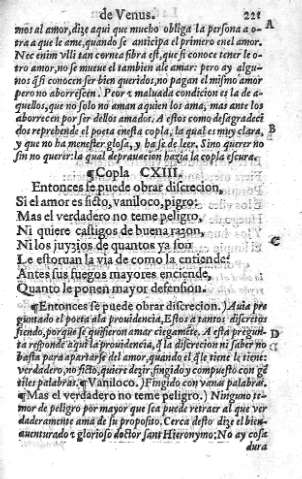 de Venus. 221
mos al amor, dize aqui que mucho obliga la persona a o- A
tra a que le ame, quando se anticipa el primero en el amor.
Nec enim vlli tan cornea fibra est, que si conoce tener le o
tro amor, no se mueue el tambien ale amar: pero ay algu-
nos q̃ si conocen ser bien queridos, no pagan el mismo amor
pero no aborrescen. Peor z maluada condicion es la de a-
quellos, que no solo no aman a quien los ama, mas ante los
aborrecen por ser dellos amados. A estos como desagradeci
dos reprehende el poeta en esta copla, la qual es muy clara, B
y que no ha menester glosa, y ha se de leer. Sino querer no
sin no querer: la qual deprauacion hazia la copla escura.
¶Copla CXIII.
Entonces se puede obrar discrecion,
Si el amor es ficto, vaniloco, pigro:
Mas el verdadero no teme peligro,
Ni quiere castigos de buena razon,
Ni los juyzios de quantos ya son C
Le estoruan la via de como la entiende:
Antes sus fuegos mayores enciende,
Quanto le ponen mayor defension.
¶Entonces se puede obrar discrecion.) Auia pre
guntado el poeta ala prouidencia, Estos atantos discretos
siendo, porque se quisieron amar ciegamẽte. A esta pregun- D
ta responde aqui la prouidencia, q̃ la discrecion ni saber no
basta para apartarse del amor, quando el q̃ le tiene le tiene
verdadero, no ficto, quiere dezir, fingido y compuesto con gẽ
tiles palabras. ¶Vaniloco.) Fingido con vanas palabras.
¶Mas el verdadero no teme peligro.) Ninguno te-
mor de peligro por mayor que sea puede retraer al que ver
daderamente ama de su proposito. Cerca desto dize el bien-
auenturado z glorioso doctor sant Hieronymo: No ay cosa
dura